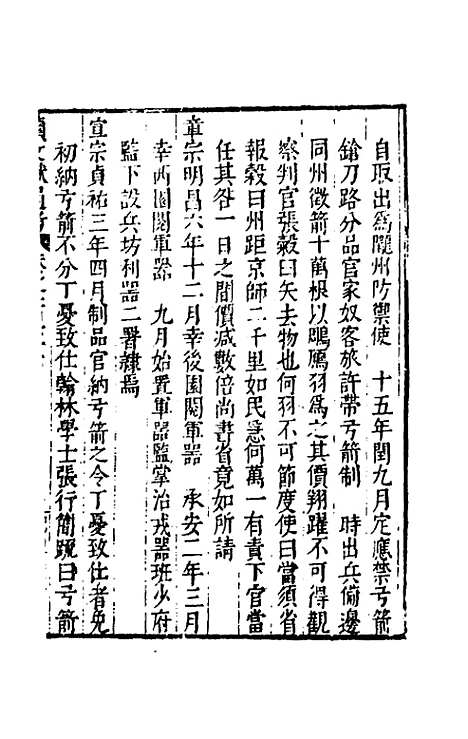 自取出爲隴州防禦使　十五年閏九月定應禁弓箭
鎗刀路分品官家奴客旅許帶弓箭制　時出兵備邊
同州徵箭十萬根以鵰鴈羽爲之其價翔躍不可得觀
察判官張轂曰矢去物也何羽不可節度使曰當須省
報轂曰州距京師二千里如民急何萬一有責下官當
任其咎一日之間價減數倍尚書省竟如所請
章宗明昌六年十二月幸後園閱軍器　承安二年三月
幸西園閱軍器　九月始置軍器監掌治戎器班少府
監下設兵坊利器二署隷焉
宣宗貞祐三年四月制品官納弓箭之令丁憂致仕者免
初納弓箭不分丁憂致仕翰林學士張行簡䟽曰弓箭